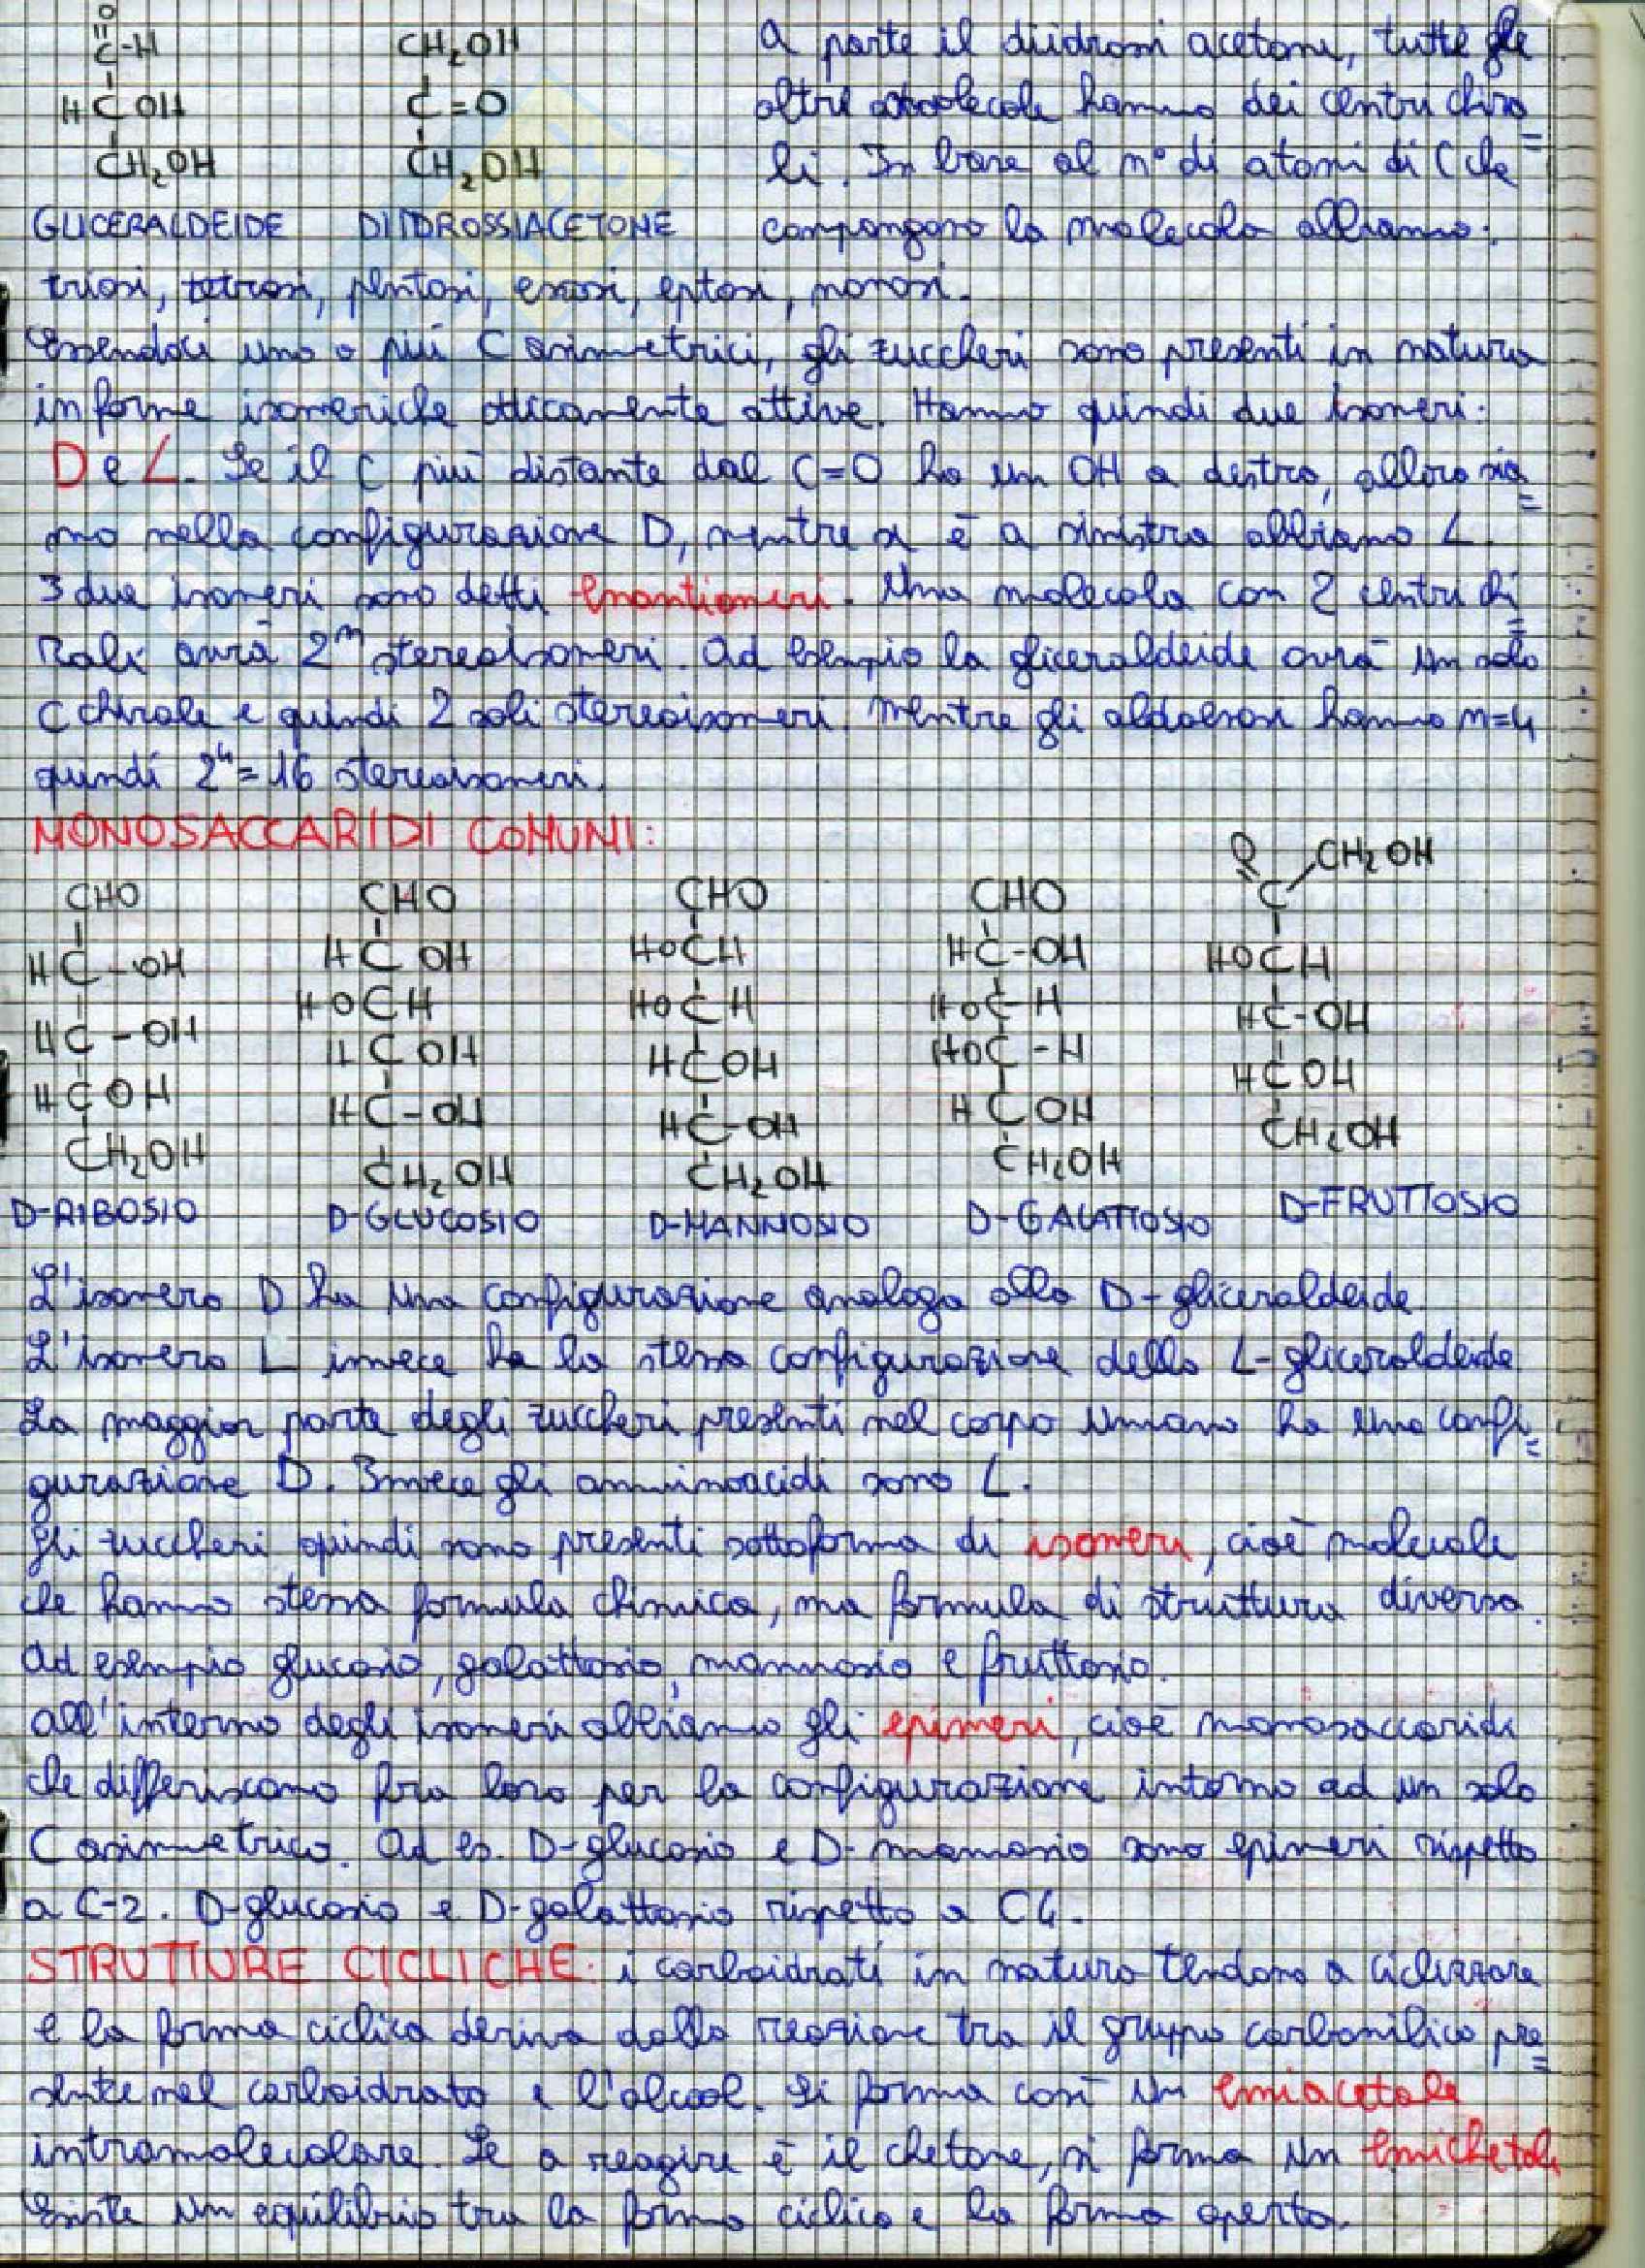 O
C-H
HCOH
CH₂OH
GLICERALDEIDE
CH₂OH
C=O
CH₂OH
DIIDROSSIACETONE
a parte il diidrossi acetone, tutte gle
altre molecole hanno dei centri chira=
li. In base al n° di atomi di C che
compongono la molecola abbiamo:
triosi, tetrosi, pentosi, esosi, eptosi, nonosi.
Essendoci uno o più C asimmetrici, gli zuccheri sono presenti in natura
in forme isomeriche otticamente attive. Hanno quindi due isomeri:
D e L. Se il C più distante dal C=O ha un OH a destra, allora sia=
mo nella configurazione D, mentre se è a sinistra abbiamo L.
I due isomeri sono detti enantiomeri. Una molecola con 2 centri chi=
rali avrà 2ⁿ stereoisomeri. Ad esempio la gliceraldeide avrà un solo
C chirale e quindi 2 soli stereoisomeri. Mentre gli aldoesosi hanno n=4
quindi 2⁴=16 stereoisomeri.
MONOSACCARIDI COMUNI:
CHO
HC-OH
HC-OH
HCOH
CH₂OH
D-RIBOSIO
CHO
HCOH
HOCH
HCOH
HC-OH
CH₂OH
D-GLUCOSIO
CHO
HOCH
HOCH
HCOH
HC-OH
CH₂OH
D-MANNOSIO
CHO
HC-OH
HOC-H
HOC-H
HCOH
CH₂OH
D-GALATTOSIO
O
CH₂OH
C
HOCH
HC-OH
HCOH
CH₂OH
D-FRUTTOSIO
L'isomero D ha una configurazione analoga alla D-gliceraldeide
L'isomero L invece ha la stessa configurazione della L-gliceraldeide
La maggior parte degli zuccheri presenti nel corpo umano ha una confi=
gurazione D. Invece gli amminoacidi sono L.
Gli zuccheri quindi sono presenti sottoforma di isomeri, cioè molecole
che hanno stessa formula chimica, ma formula di struttura diversa.
Ad esempio glucosio, galattosio, mannosio e fruttosio.
All'interno degli isomeri abbiamo gli epimeri, cioè monosaccaridi
che differiscono fra loro per la configurazione intorno ad un solo
C asimmetrico. Ad es. D-glucosio e D-mannosio sono epimeri rispetto
a C-2. D-glucosio e D-galattosio rispetto a C4.
STRUTTURE CICLICHE: i carboidrati in natura tendono a ciclizzare
e la forma ciclica deriva dalla reazione tra il gruppo carbonilico pre=
sente nel carboidrato e l'alcool. Si forma così un emiacetale
intramolecolare. Se a reagire è il chetone, si forma un emichetale
Esiste un equilibrio tra la forma ciclica e la forma aperta.